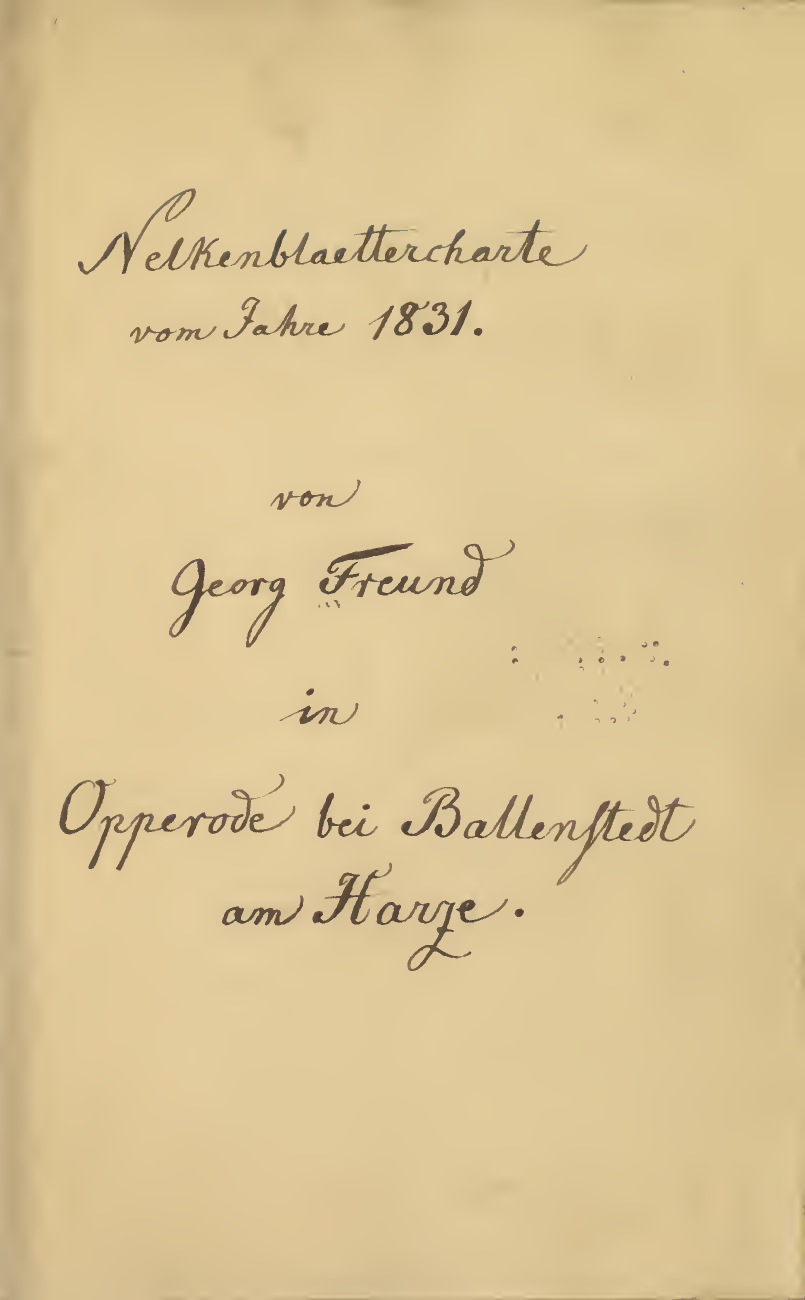 Nelkenblaettercharte
vom Jahre 1831.
von
Georg Freund
in
Opperode bei Ballenſtedt
am Harze.